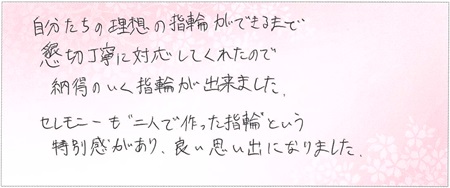 自分たちの理想の指輪ができるまで
懇切丁寧に対応してくれたので
納得のいく指輪が出来ました。
セレモニーも"二人で作った指輪"という
特別感があり、良い思い出になりました。